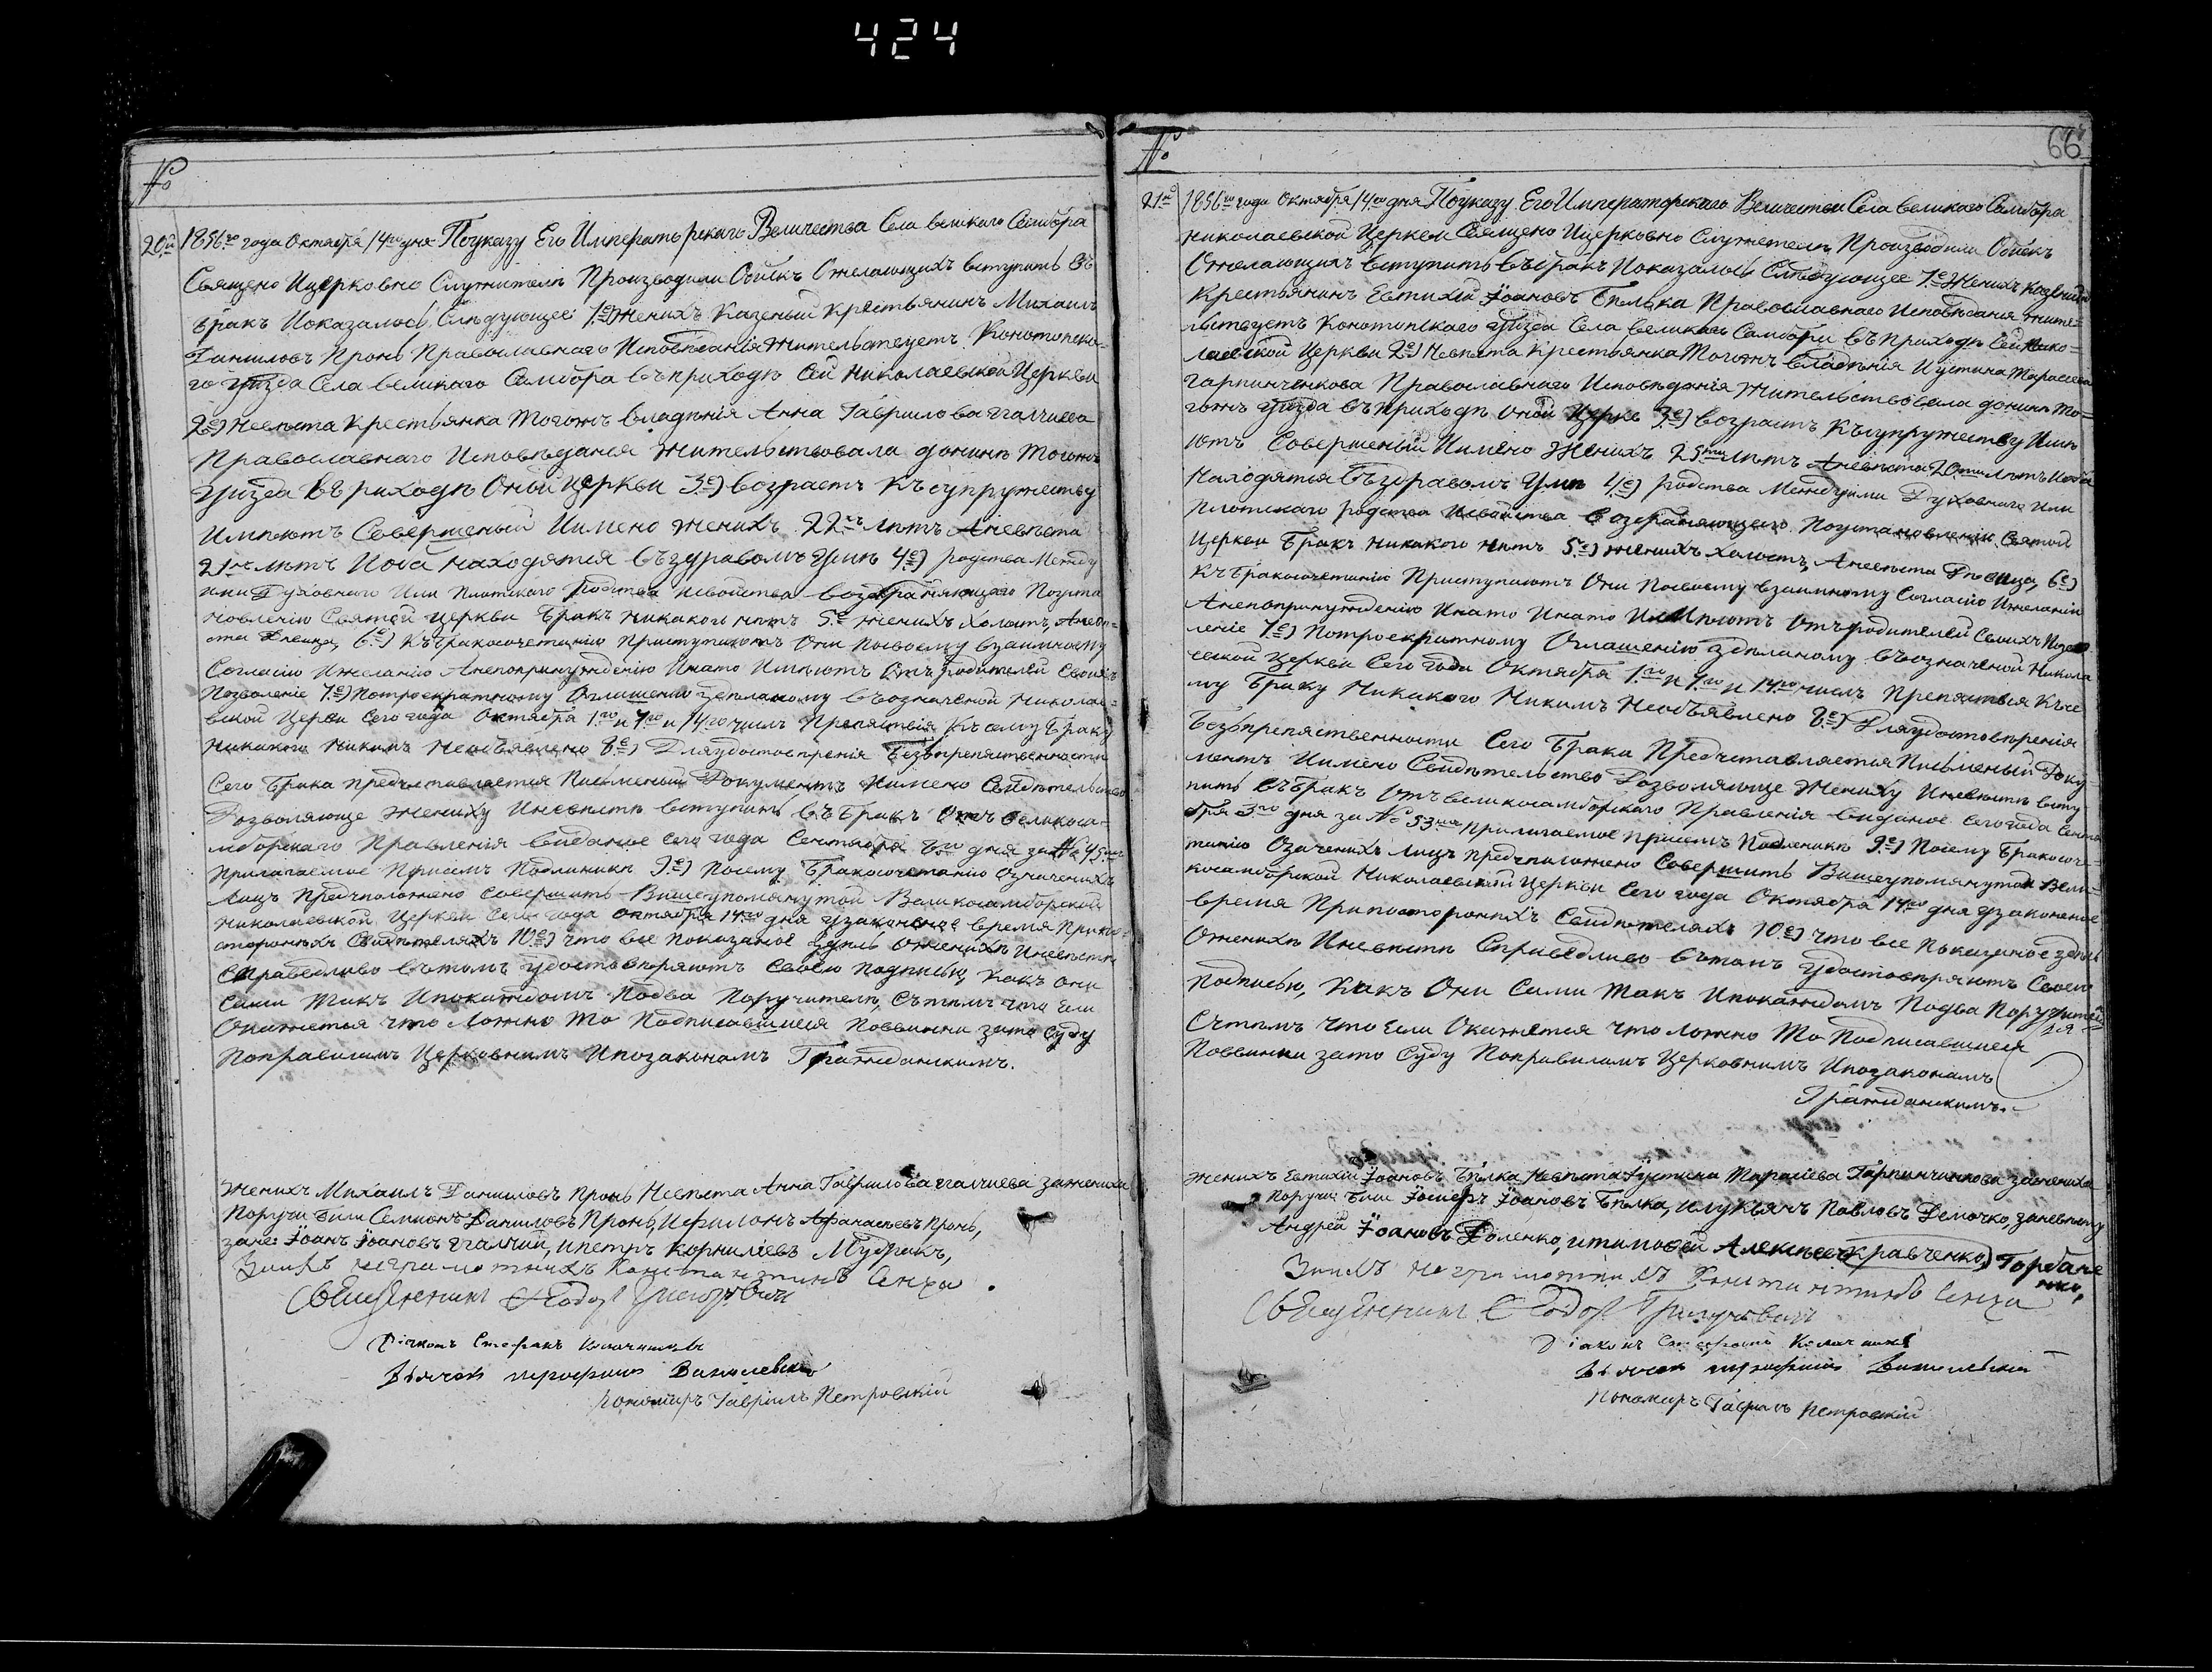 424
№
20й 1856го года Октября 14го дня Поуказу Его Императорскаго Величества Села великаго Самбора
Священо Ицерковно Служители Производили Обискъ Ожелающихъ вступить въ
бракъ Иоказалось Следующее 1е) Женихъ Казеный Крестьянинъ Михаилъ
Даниловъ Пронь Православнаго Исповеданія жительствуетъ Конотопска-
го уизда Села великаго Самбора въприходе Сей Николаевской Церкви
2е) Невеста Крестьянка Тогожъ владенія Анна Гаврилова
Православнаго Исповеданія жительствовала донине Тогожъ
Уизда въ приходе Оной церкви 3е) возрастъ Късупружеству
Имеютъ Совершеный Иимено жених 22хъ летъ Аневеста
21го летъ Иоба находятся въздравомъ уми 4е) родства Между
ими Духовного Или Плотскаго родства исвойства возбраняющаго Поуста
новленію Святой церкви бракъ никакого нетъ 5е женихъ холостъ, Аневе-
ста Девица, 6е) Къбракосочетанію приступаютъ Они Посвоему взаимному
Согласію Ижеланію Анепопринужденію Инато Имеютъ Отъ родителей Своихъ
Позволеніе 7е) Потроекратному Оглашению зделаному въозначеной Николае-
вской Церкви Сего года Октября 1го и 7го и 14го числъ Препятствія Късему браку
Никакого Никимъ Необъявлено 8е) Дляудостоверенія Безъпрепятственности
Сего Брака предъставляется Писменый Документъ Иимено Свидетельство
Дозволяюще Жениху Иневесте вступить въ Бракъ Отъ великоса-
мборского Правления виданое сего года Сентября дня за № 45
Прилагаемое Присемъ Подлиникъ 9е) Посему Бракосочетанію Означенихъ
Лицъ Предъположено совершить Вишеупомянутой Великосамборской
Николаевской Церкви Сего года Октября 14го дня узаконеное время Припо-
стороннихъ Свидетеляхъ 10е) что все показаное здесь Оженихе Иневесте
Справедливо въ томъ удостоверяютъ своею подписью, какъ они
Сами такъ Ипокаждомъ Подва Поручителя, Сътемъ что Если
Окажется что ложно то Подписавшиеся Повинни зато Суду
Поправиламъ Церковнимъ Ипозаконамъ Гражданскимъ.
Женихъ Михаилъ Даниловъ Пронь Невеста Анна Гаврилова зажениха
Поручи Били Семионъ Даниловъ Пронь, Афанасьевъ Пронь,
зане: Іоанъ Іоановъ, ипетръ Корниліевъ Мудракъ,
Заихъ неграмотнихъ Константинъ Сенха
Священникъ Федоръ
Діаконъ Стефанъ
Дьячок Василевский
пономаръ Гавріилъ Петровскій
№
66
21й 1856го года Октября 14го дня Поуказу Его Императорскаго Величества Села великаго Самбора
николаевской Церкви Священо Ицерковно Служители Производили Обискъ
Ожелающихъ вступить въбракъ Иоказалось Следующее 1е Женихъ Казеный
Крестьянинъ Евтихій Іоановъ Белка Православнаго Исповеданія жите-
льствуетъ Конотопскаго уизда Села великаго Самбора въ приходе Сей Нико-
лаевской Церкви 2е) Невеста Крестьянка Тогожъ владенія Иустина Тарасіева
Гарпинченкова Православнаго Исповеданія жительствовала донине То-
гожъ уизда въприходе Оной Церкв 3е) возрастъ Късупружеству Име
ютъ Совершеный Иимено Женихъ 25ти летъ Аневеста 20ти летъ Иоба
Находятся въздравомъ уми 4е) родства Междуими Духовнаго или
плотскаго родства исвойства возбраняющаго Поустановленію Святой
Церкви бракъ никакого нетъ 5е) женихъ холостъ, Аневеста Девица, 6е)
Къ бракосочетанію Приступаютъ Они Посвоему взаимному Согласію Ижеланію
Анепопринужденію Инато Имеютъ Отъ родителей Своихъ Позво
леніе 7е) Потроекратному Оглашению зделаному въозначеной Никола
евской Церкви Сего года Октября 1го и 7го и 14го числъ Препятствія Късе
му браку Никакого Никимъ Необъявлено 8е) Дляудостоверенія
Безъпрепятственности Сего Брака Предъставляется Письменый Доку
ментъ Иимено Свидетельство Дозволяюще Жениху Иневесте всту
пить въбракъ Отъ великосамборскаго Правленія виданое Сего года Сентя
бря 3го дня за № 53 прилагаемое присемъ Подленикъ 9е) Посему Бракосоче-
танію Означенихъ Лицъ предъположено Совершить Вишеупомянутой Вели-
косамборской Николаевской Церкви Сего года Октября 14го дня узаконеное
время Припостороннихъ Свидетеляхъ 10е) что все Показаное здесь
Оженихе Иневесте Справедливо въ томъ удостоверяютъ Своею
Подписью, Какъ Они Сами такъ Ипокаждомъ Подва Поручите-
ля
Сътемъ что Если Окажется что ложно то Подписавшиеся
Повинни зато Суду Поправиламъ Церковнимъ Ипозаконамъ
Гражданскимъ.
Женихъ Евтихій Іоановъ Белка Невеста Іустина Тарасіева Гарпинченкова зажениха
Поручи Били Іосифъ Іоановъ Белка, илукьянъ Павловъ Демочко, заневесту
Андрей Іоановъ Доленко, итимофей Алексеевъ (Кравченко) Горбане
нко,
Заихъ неграмотнихъ Константинъ Сенха
Священникъ Федоръ
Діаконъ Стефанъ
Дьячок Василевский
Пономаръ Гавріилъ Петровскій